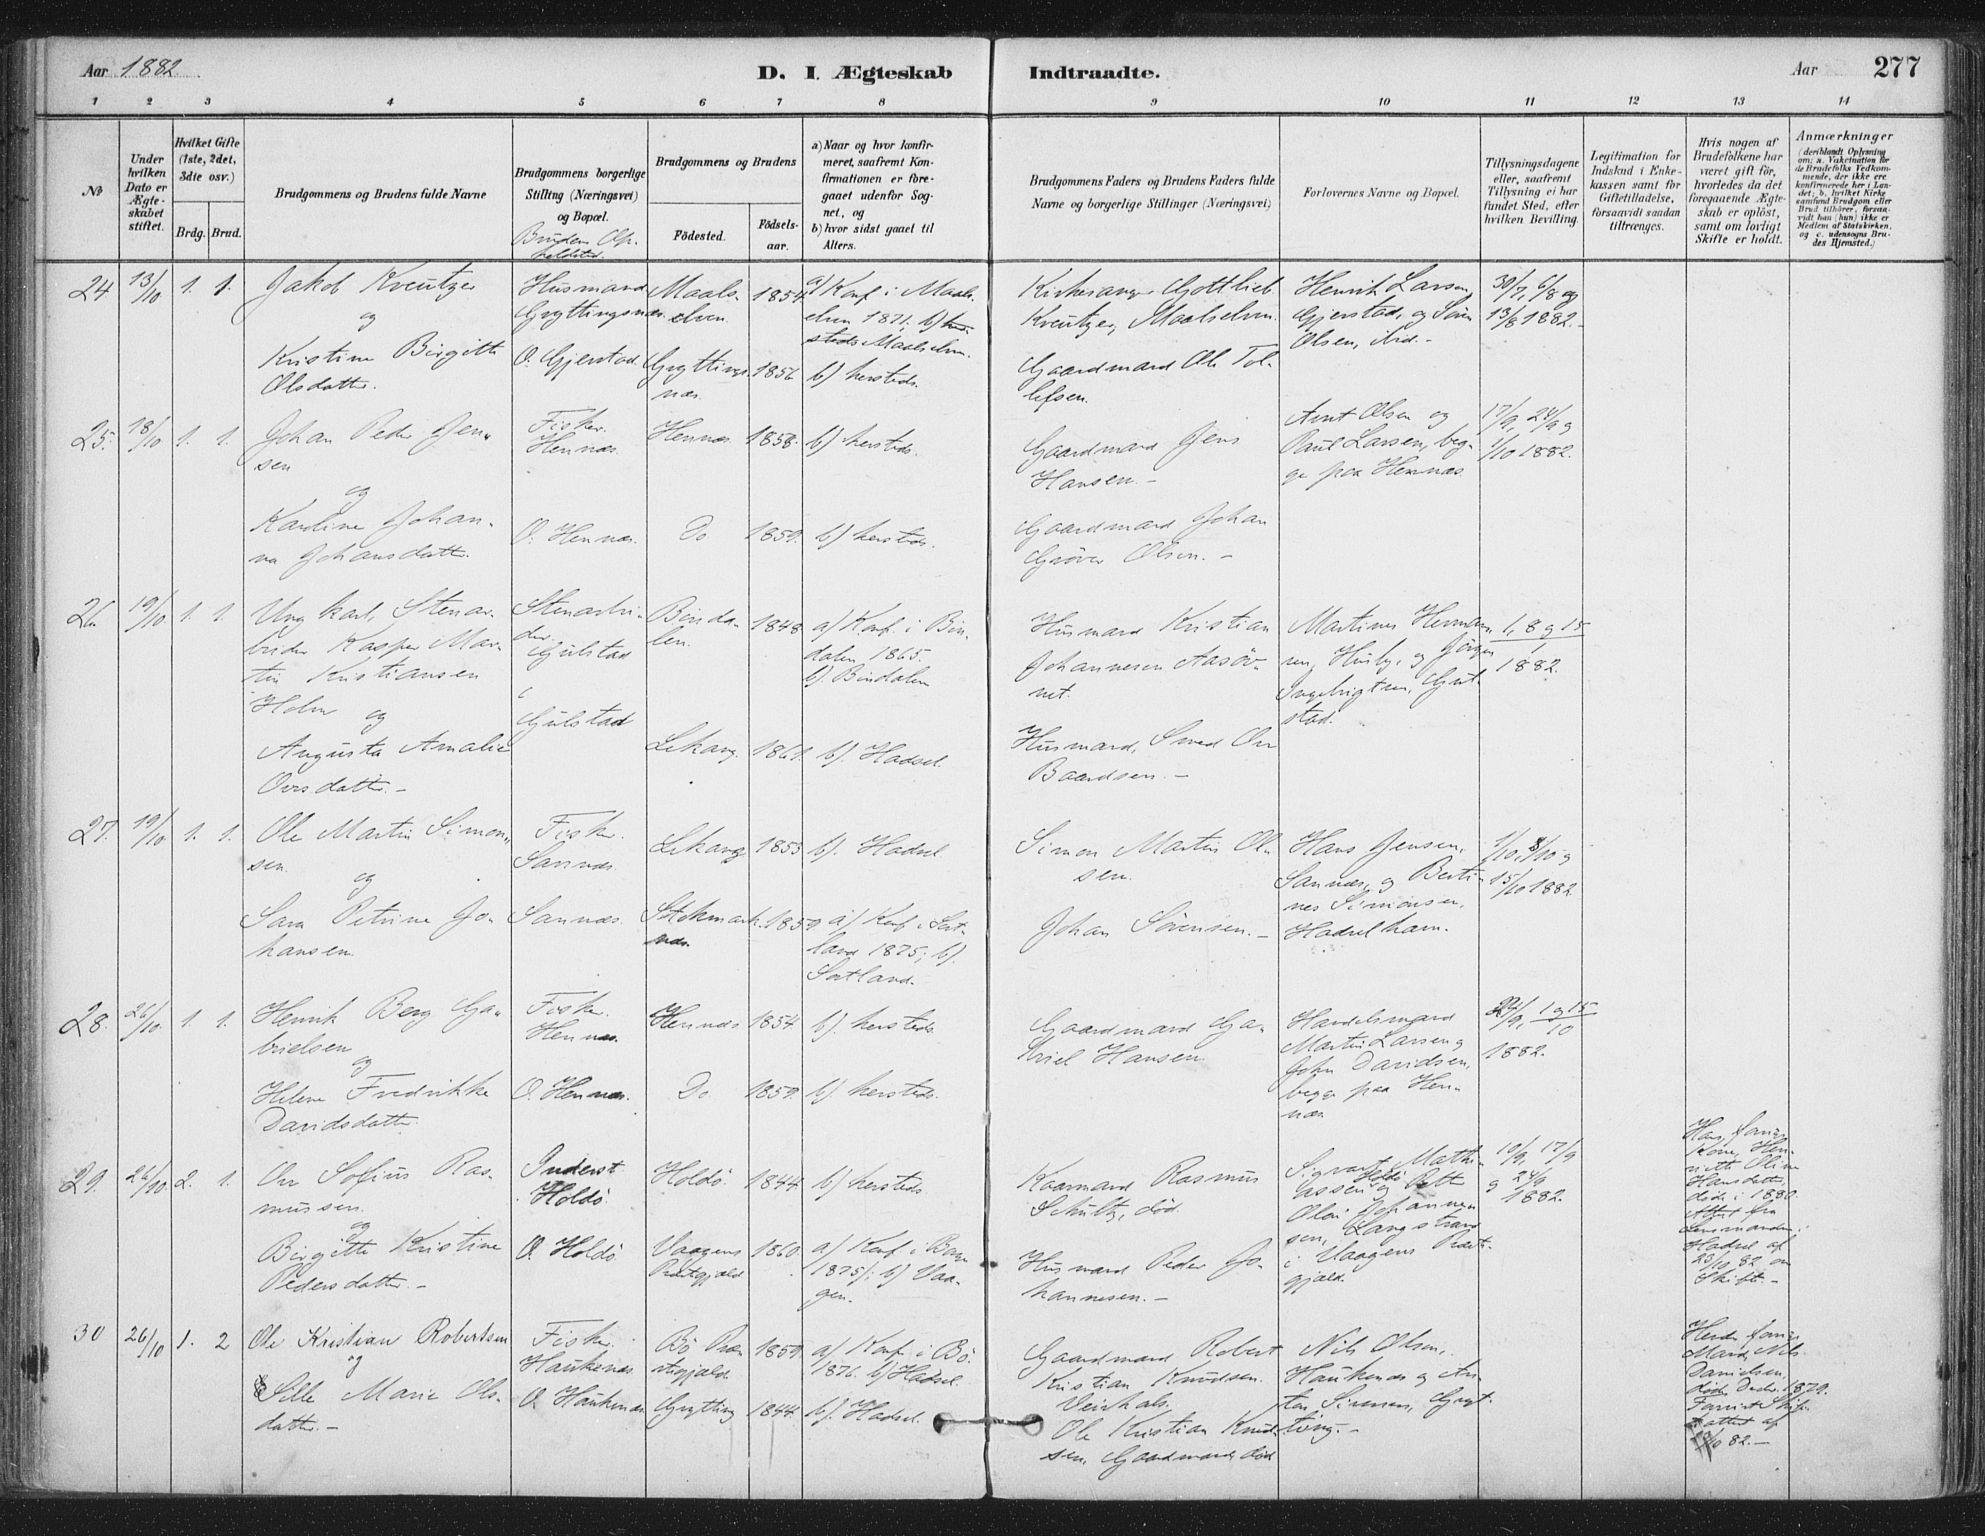 Aar 1882.
D. I. Ægteskab
Indtraadte.
Aar
277
1 2 3 4 5 6 7 8 9 10 11 12 13 14
No
Under hvilken Dato er Ægteskabet stiftet.
Hvilket Gifte (1ste, 2det, 3die osv.)
Brdg. Brud.
Brudgommens og Brudens fulde Navne
Brudgommens borgerlige Stilling (Næringsvei) og Bopæl.
Brudens Opholdssted.
Brudgommens og Brudens
Födested.
Födselsaar.
a) Naar og hvor konfirmeret, saafremt Konfirmationen er foregaaet udenfor Sognet, og
b) hvor sidst gaaet til Alters.
Brudgommens Faders og Brudens Faders fulde Navne og borgerlige Stillinger (Næringsvei)
Forlovernes Navne og Bopæl.
Tillysningsdagene eller, saafremt Tillysning ei har fundet Sted, efter hvilken Bevilling.
Legitimation for Indskud i Enkekassen samt for Giftetilladelse, forsaavidt saadan tiltrænges.
Hvis nogen af Brudefolkene har været gift för, hvorledes da det foregaaende Ægteskab er oplöst, samt om lovligt Skifte er holdt.
Anmærkninger
(deriblandt Oplysning om: a. Vakcination för de Brudefolks Vedkommende, der ikke ere konfirmerede her i Landet; b. hvilket Kirkesamfund Brudgom eller Brud tilhörer, forsaavidt han (hun) ikke er Medlem af Statskirken, og c. udensogns Brudes Hjemsted.)
24 13/10 1. 1. Jakob Kreutzer
og
Kristine Birgitte Olsdatter.
Husmand Gryttingsnæs.
O. Gjerstad.
Maalselven 1854.
Gryttingsnæs. 1856.
a) Konf. i Maalselven 1871; b)
Maalselven.
b) hersteds.
Kirkesanger Gottlieb Kreutzer, Maalselven.
Gaardmand Ole Tollefsen.
Henrik Larsen, Gjerstad, og Sören Olsen, ibid.
30/7, 6/8 og 13/8 1882.
25. 18/10 1. 1. Johan Peder Jensen
og
Karoline Johanna Johansdatter.
Fisker. Hennæs.
O. Hennæs.
Hennæs. 1858.
Do 1859.
b) hersteds.
b) hersteds.
Gaardmand Jens Hansen.
Gaardmand Johan Gröver Olsen.
Arnt Olsen og Paul Larsen, begge paa Hennæs.
17/9, 24/9 og 1/10 1882.
26 19/10 1. 1. Ungkarl, Stenarbeider Kasper Martin Kristiansen Holm
og
Augusta Amalie Oversdatter.
Stenarbeider. Gulstad
Gulstad
Bindalen. 1848.
Lekang. 1861.
a) Konf. i Bindalen 1865.
b). Bindalen
b). Hadsel.
Husmand Kristian Johannesen Aasövnet.
Husmand, Smed Over Baardsen.
Martines Hermansen, Husby, og Jörgen Ingebrigtsen, Gulstad.
1, 8 og 15
1882.
27. 19/10 1. 1. Ole Martin Simonsen.
og
Sara Petrine Johansen.
Fisker. Sannæs.
Sannæs.
Lekang 1853
Stokmarknæs. 1859
b). Hadsel.
a) Konf. i Sortland 1875; b). Sortland.
Simon Martin Olsen.
Johan Sörensen.
Hans Jensen, Sannæs, og Bertines Simonsen, Hadselhavn.
1/10, 8/10 og 15/10 1882.
28. 26/10 1. 1. Henrik Berg Gabrielsen
og
Helene Fredrikke Davidsdatter.
Fisker. Hennæs.
O. Hennæs.
Hennæs 1854.
Do 1859.
b). hersteds.
b). hersteds.
Gaardmand Gabriel Hansen.
Handelsmand Martin Larsen og John Davidsen, begge paa Hennæs.
24/9, 1 og 15/10 1882.
29. 26/10 2. 1. Over Sofius Rasmussen.
og
Birgitte Kristine Pedersdatter.
Inderst Holdö.
O. Holdö
Holdö. 1844.
Vaagens Præstegjæld 1860.
b) hersteds.
a) Konf. i
1875; b) Vaagen.
Kaarmand Rasmus Schultz, död.
Husmand Peder Johannesen.
Sigvart Mathiassen Holdö og Petter Olai Johannessen, Langstrand i Vaagens Præstegjæld.
10/9, 17/9 og 24/9 1882.
Hans forrige Kone, Henriette Oline Hansdatter, döde i 1880. Attest fra Lensmanden i Hadsel af 23/10 82 om Skifte.
30 26/10 1. 2 Ole Kristian Robertsen
og
Sille Marie Olsdatter.
Fisker. Haukenæs.
O. Haukenæs.
Bö Præstegjæld. 1859.
Grytting 1844.
a) Konf. i Bö. 1876. b) Hadsel.
b). Hadsel.
Gaardmand Robert Kristian Knudsen.
Ole Kristian Knudsen, Gaardmand, död
Nils Olsen, Haukenæs og Anton Simonsen, Grytting.
Hendes forrige Mand, Nils Danielsen, döde Decbr. 1879.
attest af
10 82.